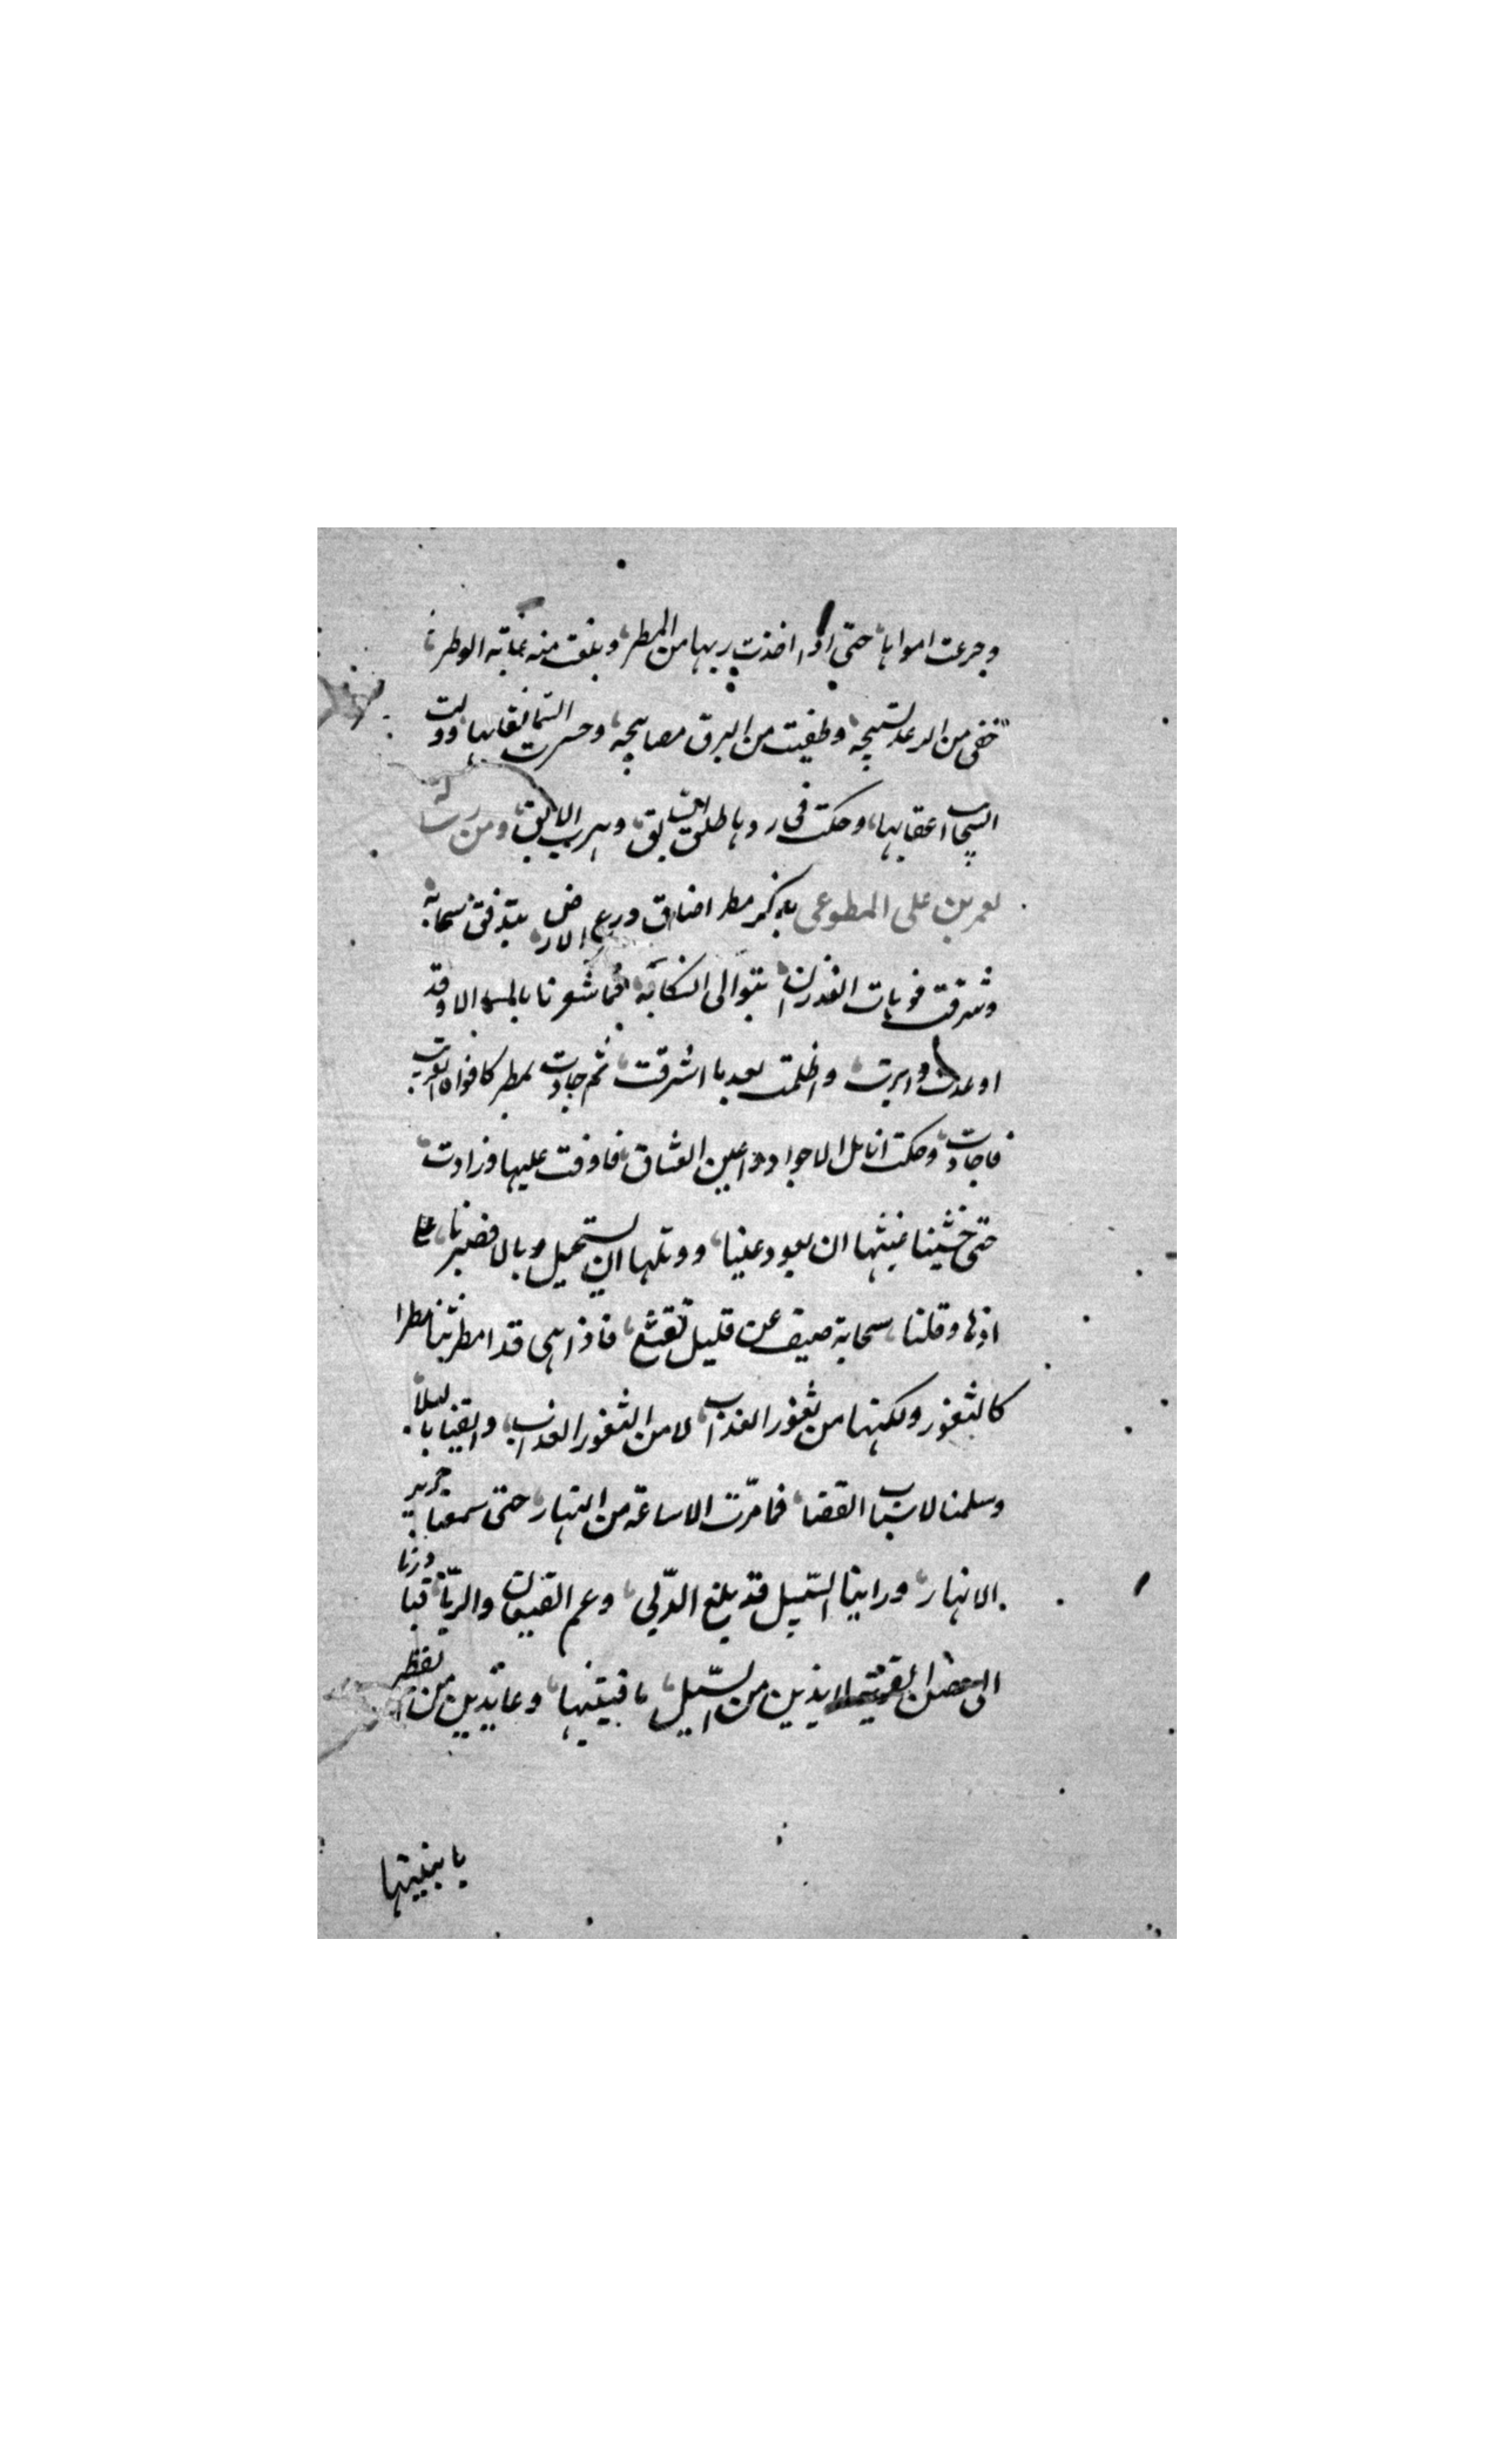 وجرعت امواها، حتى اذا اخذت ريها من المطر، وبلغت منه غاية الوطر،
خفى من الرعد تسبيحه، وطفيت من البرق مصابيحه، وحسرت السما نقابها، وولت
السحاب اعقابها، وحكت فى ردها طلق السابق، وهرب الابق، ومن رسالة
لعمر بن على المطوعى يذكر مطر اضاق ذرع الارض بتدفق سحابه،
وشرقت فوهات الغدران بتوالى انسكابه، فما شعرنا بالسما الا وقد
اوعدت وابرقت، واظلمت بعد ما اشرقت، ثم جادت بمطر كافواه القرب
فاجادت، وحكت انامل الاجواد واعين العشاق، فاوفت عليها وزادت،
حتى خشينا غيثها ان يعود عيثا، ووبلها ان يستحيل وبالا فصبرنا على
اذاها وقلنا، سحابة صيف عن قليل تقشع، فاذا هى قد امطرتنا مطرا
كالثغور ولكنها من ثغور العذاب، لا من الثغور العذاب، وايقنا بالبلا
وسلمنا لاسباب القضا، فما مرت الا ساعة من النهار، حتى سمعنا خرير
الانهار، وراينا السيل قد بلغ الزبى، وعم القيعان والربا، فبادرنا
الى حصن القرية لايذين من السيل، بافنيتها، وعايذين من القطر
بابنيتها